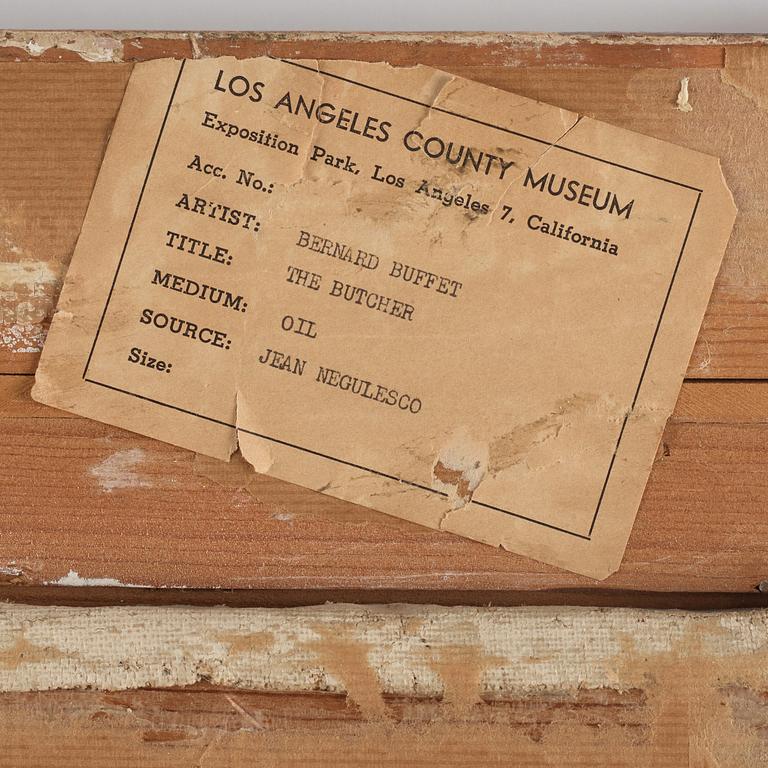 LOS ANGELES COUNTY MUSEUM
Exposition Park, Los Angeles 7, California
Acc. No.:
ARTIST: BERNARD BUFFET
TITLE: THE BUTCHER
MEDIUM: OIL
SOURCE: JEAN NEGULESCO
Size: